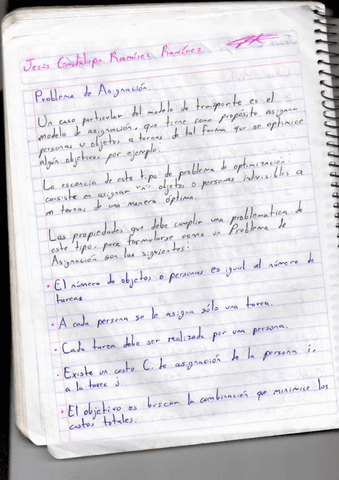 Jesús Guadalupe Ramírez Ramírez
Problema de Asignación.
Un caso particular del modelo de transporte es el
modelo de asignación, que tiene como propósito asignar
personas u objetos a tareas de tal forma que se optimice
algún objetivos por ejemplo:
La escencia de este tipo de problema de optimización
consiste en asignar "n" objetos o personas indivisibles a
m tareas de una manera óptima.
Las propiedades que debe cumplir una problematica de
este tipo, para formularse como un Problema de
Asignación son las siguientes:
• El número de objetos o personas es igual al número de
tareas.
• A cada persona se le asigna sólo una tarea.
• Cada tarea debe ser realizada por una persona.
• Existe un costo C. de asignación de la persona i,
a la tarea j
• El objetivo es buscar la combinación que minimice los
costos totales.